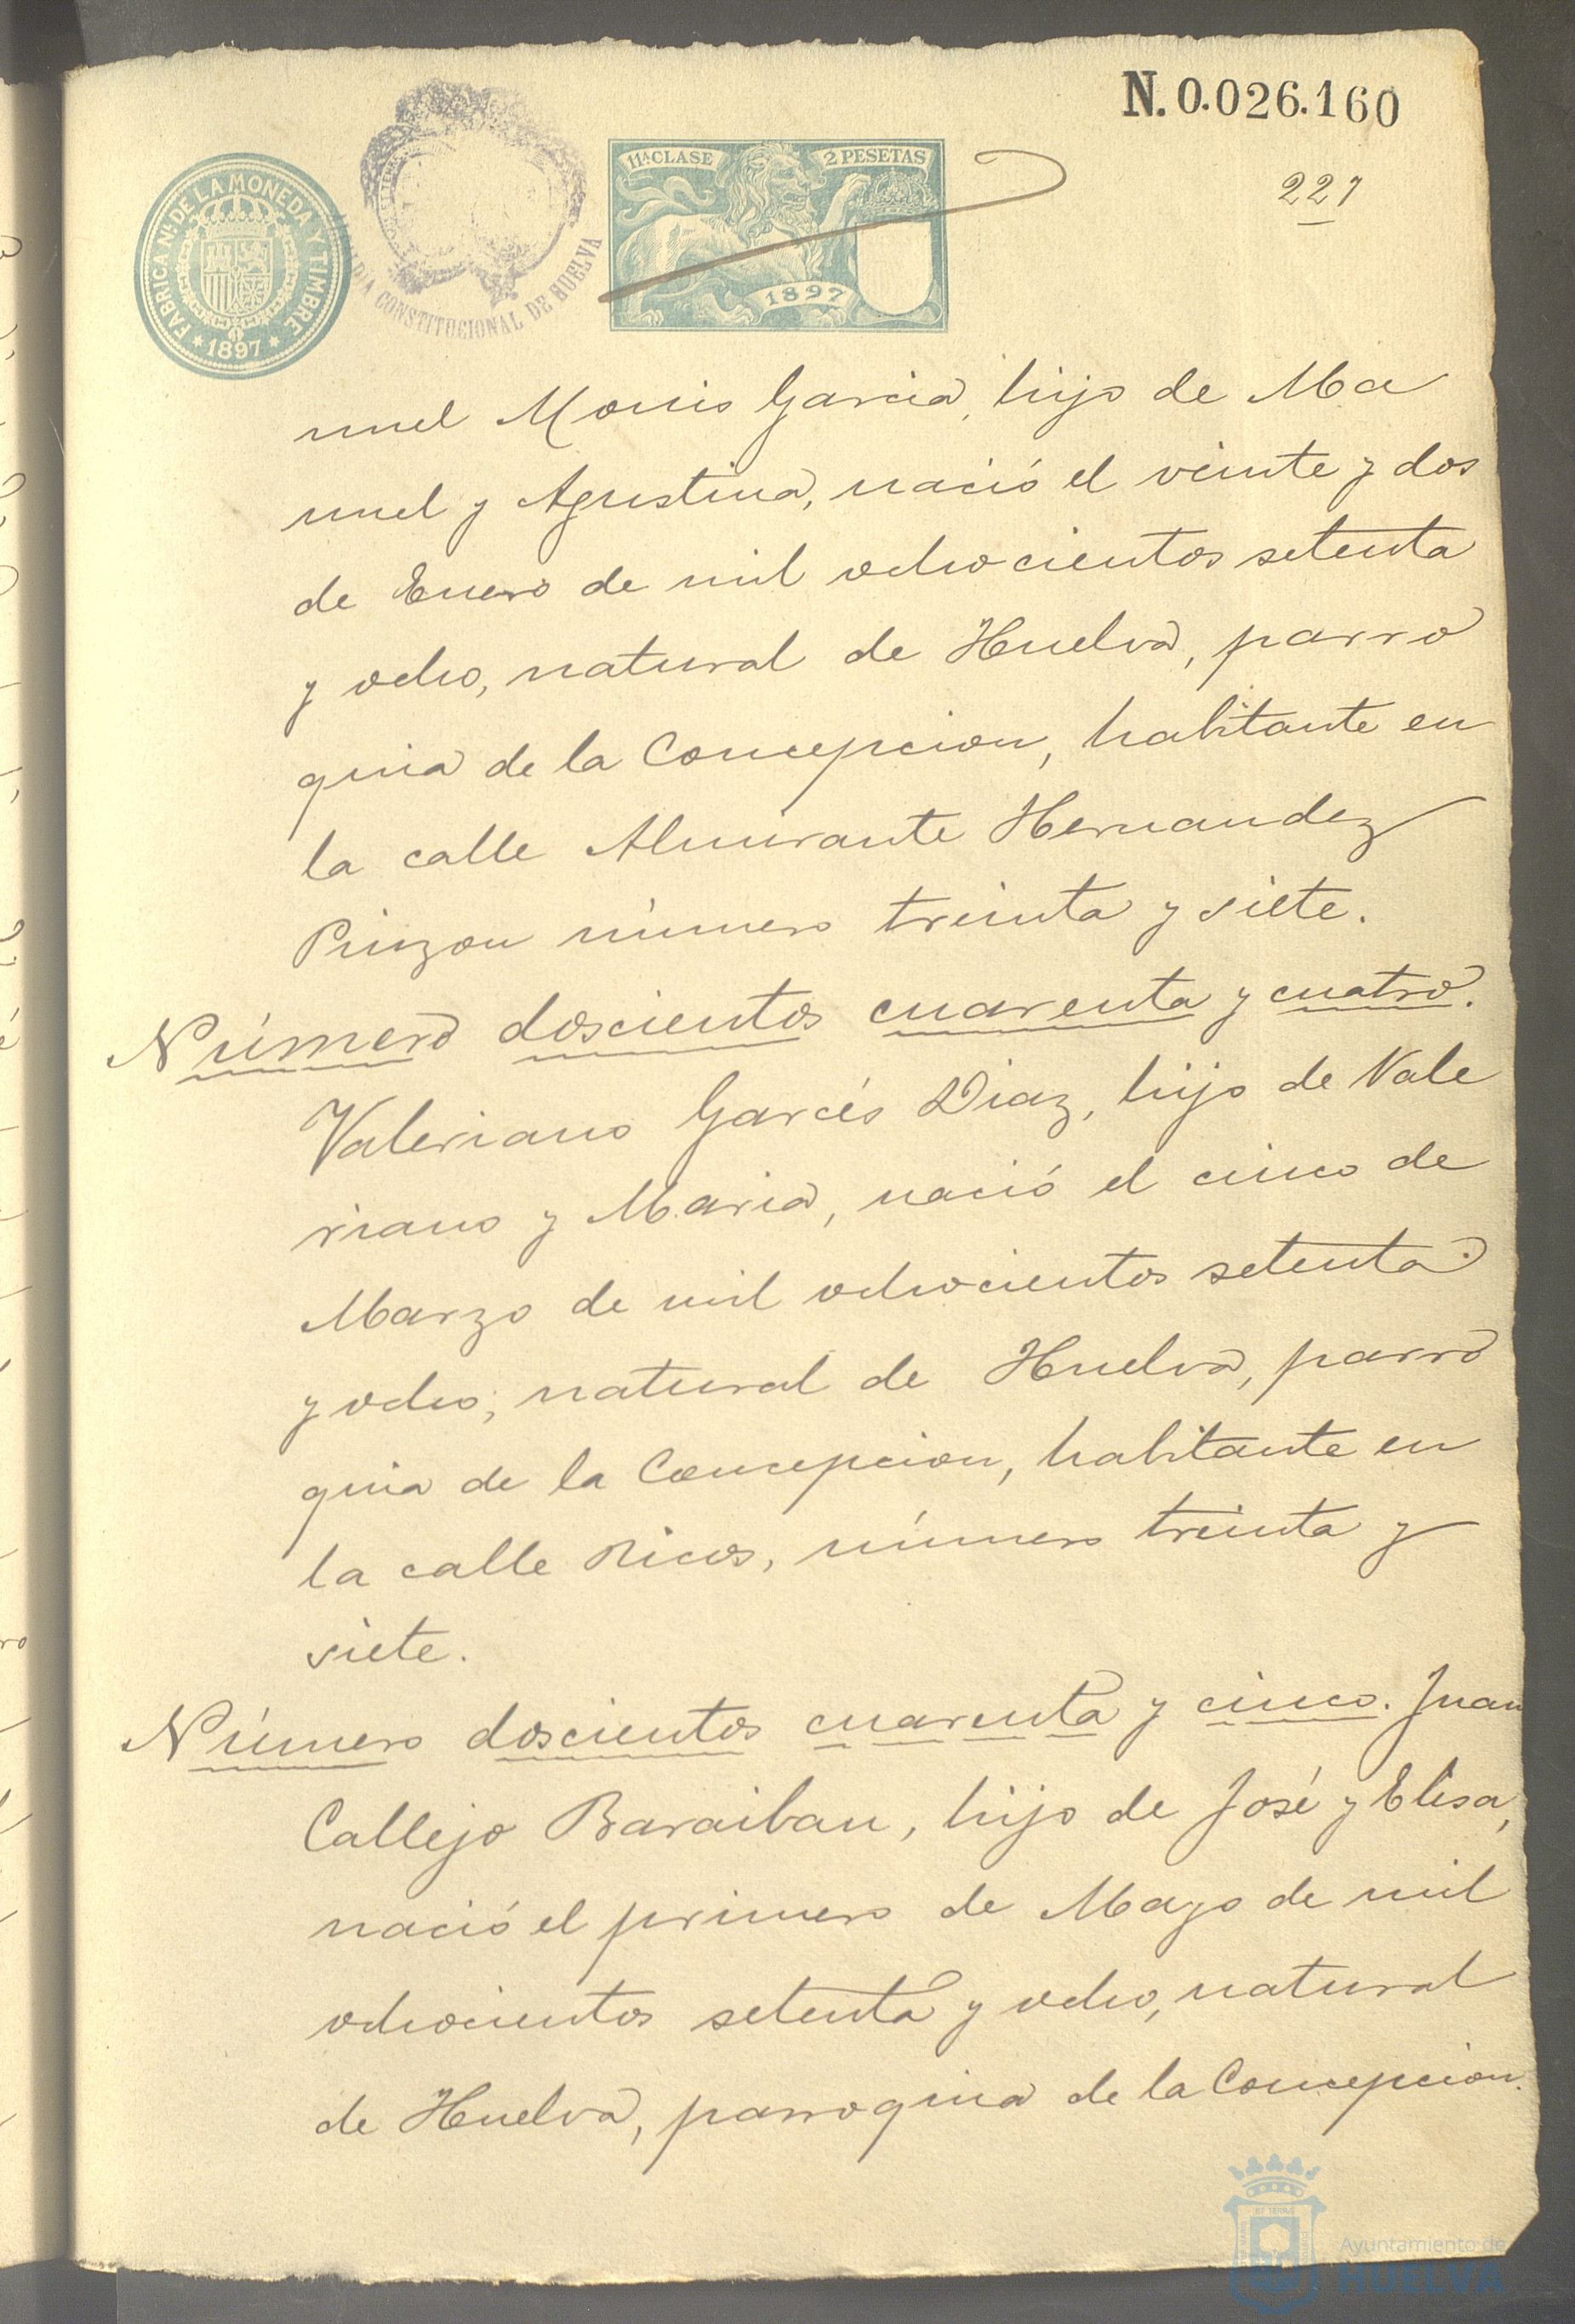 N. 0.026.160
221
FABRICA Nal DE LA MONEDA Y TIMBRE
* 1897 *
CONSTITUCIONAL DE HUELVA
11ª CLASE
2 PESETAS
1897
nuel Monis Garcia, hijo de Ma
nuel y Agustina, nació el veinte y dos
de Enero de mil ochocientos setenta
y ocho, natural de Huelva, parro
quia de la Concepcion, habitante en
la calle Almirante Hernandez
Pinzon número treinta y siete.
Número doscientos cuarenta y cuatro.
Valeriano Garcés Diaz, hijo de Vale
riano y Maria, nació el cinco de
Marzo de mil ochocientos setenta
y ocho, natural de Huelva, parro
quia de la Concepcion, habitante en
la calle Ricos, número treinta y
siete.
Número doscientos cuarenta y cinco. Juan
Callejo Baraiban, hijo de José y Elisa,
nació el primero de Mayo de mil
ochocientos setenta y ocho, natural
de Huelva, parroquia de la Concepcion.
Ayuntamiento de
HUELVA